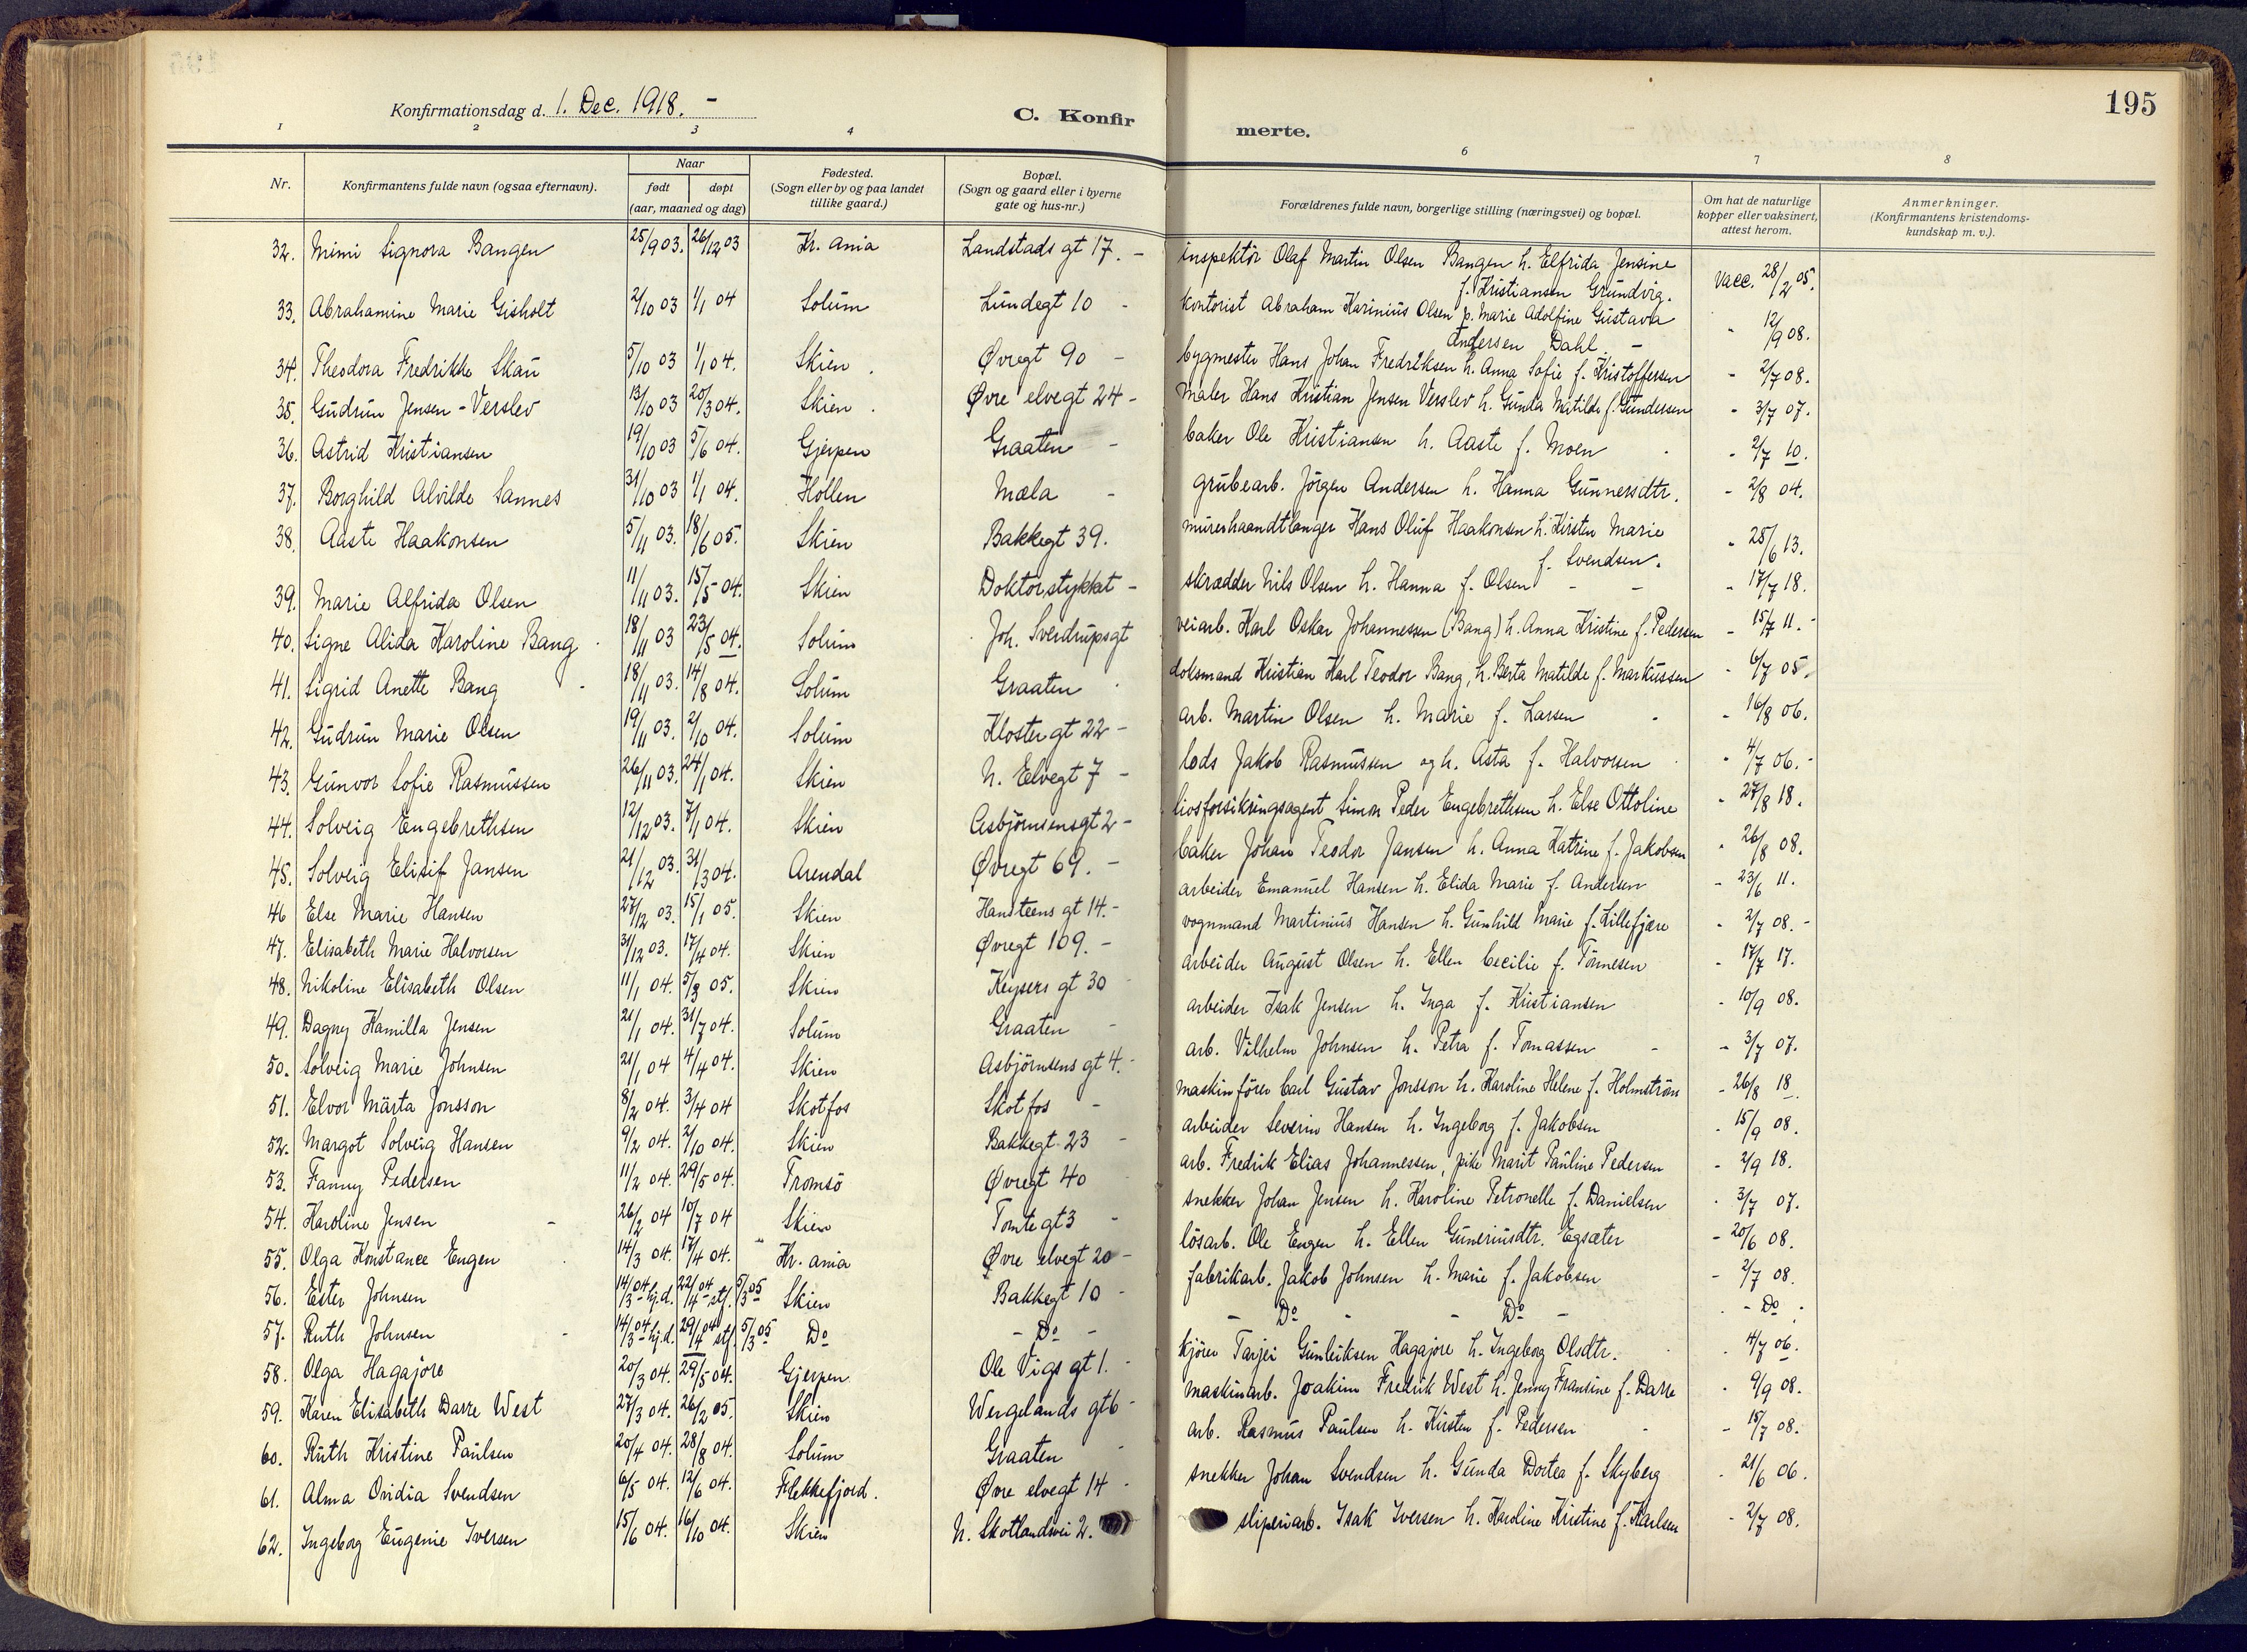 195
Konfirmationsdag d. 1. Dec. 1918. -
C. Konfirmerte.
1 2 3 4 6 7 8
Nr. | Konfirmantens fulde navn (ogsaa efternavn). | Naar født | døpt (aar, maaned og dag) | Fødested. (Sogn eller by og paa landet tillike gaard.) | Bopæl. (Sogn og gaard eller i byerne gate og hus-nr.) | Forældrenes fulde navn, borgerlige stilling (næringsvei) og bopæl. | Om hat de naturlige kopper eller vaksinert, attest herom. | Anmerkninger. (Konfirmantens kristendoms-kundskap m. v.).
32. Mimi Signora Bangen 25/9 03. 26/12 03 Kr. ania Landstads gt 17. - inspektör Olaf Martin Olsen Bangen h. Elfrida Jensine Vacc. 28/2 05.
f. Kristiansen Grundvig.
33. Abrahamine Marie Gisholt 2/10 03 1/1 04 Solum Lundegt 10 - kontorist Abraham Karinius Olsen p. Marie Adolfine Gustava - 12/9 08.
Andersen Dahl. -
34. Theodora Fredrikke Skau 5/10 03 1/1 04. Skien. Øvregt 90 - bygmester Hans Johan Fredriksen h. Anna Sofie f. Kristoffersen - 2/7 08.
35. Gudrun Jensen-Verslev 13/10 03 20/3 04. Skien. Øvre elvegt 24 - Maler Hans Kristian Jensen Verslev h. Gunda Matilde f. Gundersen - 3/7 07.
36. Astrid Kristiansen 19/10 03 5/6 04. Gjerpen Graaten - baker Ole Kristiansen h. Aaste f. Moen - 2/7 10.
37. Borghild Alvilde Sannes 31/10 03 1/1 04. Hollen Mæla - grubearb. Jörgen Andersen h. Hanna Gunnersdtr. - 2/8 04.
38. Aaste Haakonsen 5/11 03. 18/6 05. Skien Bakkegt 39. murerhaandtlanger Hans Oluf Haakonsen h. Kirsten Marie - 25/6 13.
f. Svendsen.
39. Marie Alfrida Olsen 11/11 03. 15/5 04. Skien Doktorstykket - skrædder Nils Olsen h. Hanna f. Olsen - - - 17/7 18.
40. Signe Alida Karoline Bang 18/11 03 23/5 04. Solum Joh. Sverdrupsgt veiarb. Karl Oskar Johannessen (Bang) h. Anna Kristine f. Pedersen - 15/7 11. -
41. Sigrid Anette Bang 18/11 03. 14/8 04. Solum Graaten doksmand Kristian Karl Teodor Bang, h. Berta Matilde f. Markussen - 6/7 05.
42. Gudrun Marie Olsen 19/11 03. 2/10 04. Solum Kloster gt 22 - arb. Martin Olsen h. Marie f. Larsen - 16/8 06.
43. Gunvor Sofie Rasmussen 26/11 03. 24/1 04. Skien N. Elvegt 7 - lods Jakob Rasmussen og h. Asta f. Halvorsen - 4/7 06. -
44. Solveig Engebrethsen 12/12 03. 7/1 04. Skien Asbjörnsensgt 2 - livsforsikringsagent Simon Peder Engebrethsen h. Else Ottoline - 27/8 18.
45. Solveig Elisif Jansen 21/12 03. 31/3 04. Arendal Øvregt 69. - baker Johan Teodor Jansen h. Anna Katrine f. Jakobsen - 26/8 08.
46 Else Marie Hansen 27/12 03. 15/1 05. Skien Hansteens gt 14. - arbeider Emanuel Hansen h. Elida Marie f. Andersen - 23/6 11.
47. Elisabeth Marie Halvorsen 31/12 03. 17/4 04. Skien Øvregt 109. - vognmand Martinius Hansen h. Gunhild Marie f. Lillefjære - 2/7 08. -
48. Nikoline Elisabeth Olsen 11/1 04. 5/3 05. Skien Keysers gt 30 arbeider August Olsen h. Ellen Cecilie f. Tönnesen - 17/7 17.
49. Dagny Kamilla Jensen 21/1 04. 31/7 04. Solum Graaten - arbeider Isak Jensen h. Inga f. Kristiansen - 10/9 08.
50. Solveig Marie Johnsen 21/1 04 4/4 04. Skien Asbjörnsens gt 4. arb. Vilhelm Johnsen h. Petra f. Tomassen - - 3/7 07.
51. Elvor Märta Jonsson 8/2 04. 3/4 04 Skotfos Skotfos - maskinförer Carl Gustav Jonsson h. Karoline Helene f. Holmström - 26/8 18.
52. Margot Solveig Hansen 9/2 04. 2/10 04. Skien Bakkegt 23 - arbeider Severin Hansen h. Ingeborg f. Jakobsen - 15/9 08.
53. Fanny Pedersen 11/2 04. 29/5 04. Tromsö Øvregt 40 arb. Fredrik Elias Johannessen, pike Marit Pauline Pedersen - 2/9 18.
54. Karoline Jensen 26/2 04 10/7 04 Skien Tomtegt 3 - snekker Johan Jensen h. Karoline Petronelle f. Danielsen - 3/7 07.
55. Olga Konstance Engen 14/3 04. 17/4 04. Kr. ania Øvre elvegt 20 - lösarb. Ole Engen h. Ellen Guneriusdtr. Egsæter - 20/6 08.
56. Ester Johnsen 14/3 04 hj.d. 22/4 04 stf. 5/3 05 Skien Bakkegt 10 - fabrikarb. Jakob Johnsen h. Marie f. Jakobsen - 2/7 08.
57. Ruth Johnsen 14/3 04 hj.d. 29/4 04 stf. 5/3 05 Do - Do - - Do - Do - - Do.
58. Olga Hagajore 20/3 04. 29/5 04. Gjerpen Ole Vigs gt 1. - kjörer Tarjei Gunleiksen Hagajore h. Ingeborg Olsdtr. - 4/7 06.
59. Karen Elisabeth Darre West 27/3 04. 26/2 05. Skien Wergelands gt 6 - maskinarb. Joakim Fredrik West h. Jenny Fransine f. Darre - 9/9 08.
60. Ruth Kristine Paulsen 20/4 04. 28/8 04. Solum Graaten - arb. Rasmus Paulsen h. Kirsten f. Pedersen - - 15/7 08.
61. Alma Ovidia Svendsen 6/5 04. 12/6 04. Flekkefjord. Øvre elvegt 14 - snekker Johan Svendsen h. Gunda Dortea f. Skyberg - 21/6 06.
62. Ingeborg Eugenie Iversen 15/6 04. 16/10 04. Skien N. Skotlandsvei 2. sliperiarb. Isak Iversen h. Karoline Kristine f. Karlsen - 2/7 08.